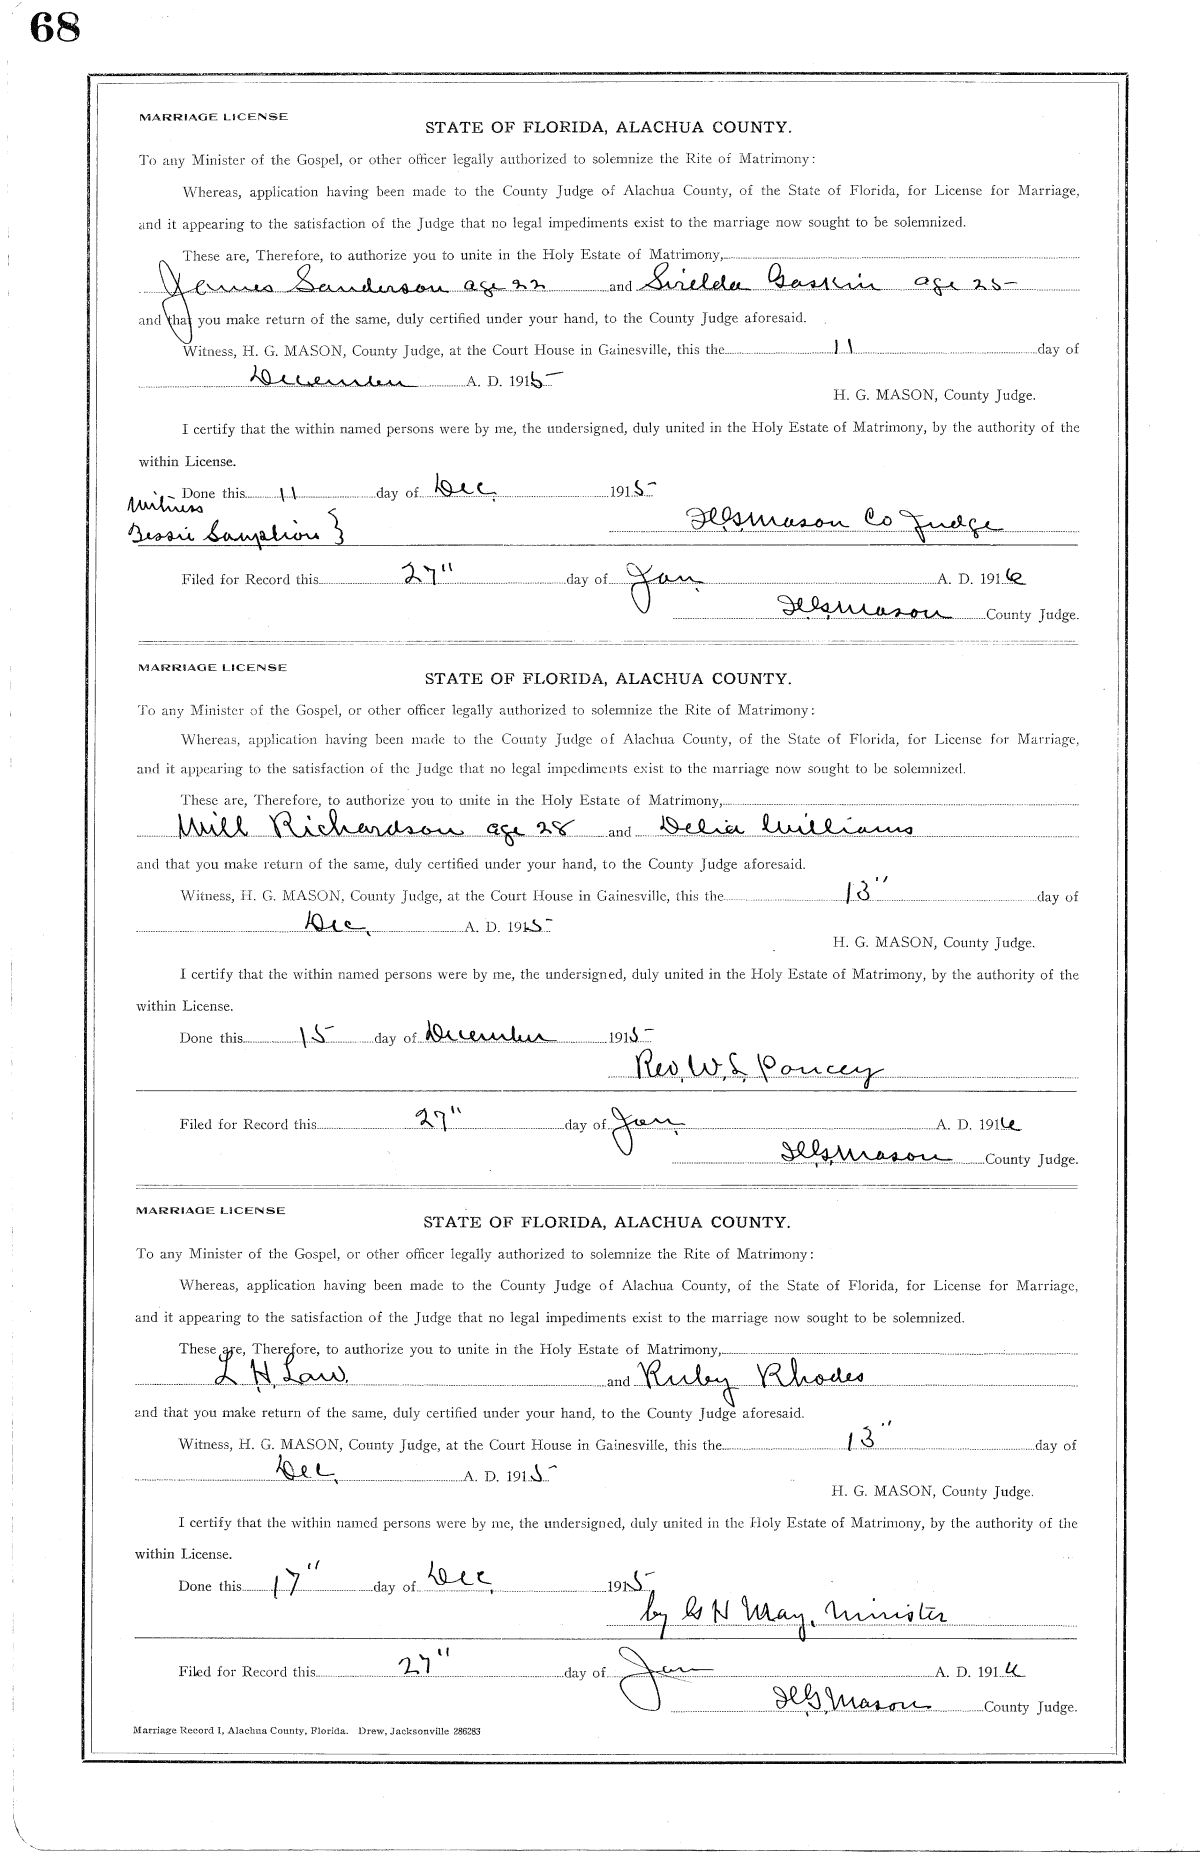 68
MARRIAGE LICENSE
STATE OF FLORIDA, ALACHUA COUNTY.
To any Minister of the Gospel, or other officer legally authorized to solemnize the Rite of Matrimony:
Whereas, application having been made to the County Judge of Alachua County, of the State of Florida, for License for Marriage,
and it appearing to the satisfaction of the Judge that no legal impediments exist to the marriage now sought to be solemnized.
These are, Therefore, to authorize you to unite in the Holy Estate of Matrimony,
James Sanderson age 22 and Sirelda Gaskin age 25
and that you make return of the same, duly certified under your hand, to the County Judge aforesaid.
Witness, H. G. MASON, County Judge, at the Court House in Gainesville, this the 11 day of
December A. D. 1915
H. G. MASON, County Judge.
I certify that the within named persons were by me, the undersigned, duly united in the Holy Estate of Matrimony, by the authority of the
within License.
Done this 11 day of Dec. 1915
Witness
Bessie Sampson } H.G. Mason Co Judge
Filed for Record this 27" day of Jan. A. D. 1916
H.G. Mason County Judge.
MARRIAGE LICENSE
STATE OF FLORIDA, ALACHUA COUNTY.
To any Minister of the Gospel, or other officer legally authorized to solemnize the Rite of Matrimony:
Whereas, application having been made to the County Judge of Alachua County, of the State of Florida, for License for Marriage,
and it appearing to the satisfaction of the Judge that no legal impediments exist to the marriage now sought to be solemnized.
These are, Therefore, to authorize you to unite in the Holy Estate of Matrimony,
Will Richardson age 28 and Delia Williams
and that you make return of the same, duly certified under your hand, to the County Judge aforesaid.
Witness, H. G. MASON, County Judge, at the Court House in Gainesville, this the 13" day of
Dec. A. D. 1915
H. G. MASON, County Judge.
I certify that the within named persons were by me, the undersigned, duly united in the Holy Estate of Matrimony, by the authority of the
within License.
Done this 15 day of December 1915
Rev. W. L. Poncey
Filed for Record this 27" day of Jan. A. D. 1916
H.G. Mason County Judge.
MARRIAGE LICENSE
STATE OF FLORIDA, ALACHUA COUNTY.
To any Minister of the Gospel, or other officer legally authorized to solemnize the Rite of Matrimony:
Whereas, application having been made to the County Judge of Alachua County, of the State of Florida, for License for Marriage,
and it appearing to the satisfaction of the Judge that no legal impediments exist to the marriage now sought to be solemnized.
These are, Therefore, to authorize you to unite in the Holy Estate of Matrimony,
L. H. Law. and Ruby Rhodes
and that you make return of the same, duly certified under your hand, to the County Judge aforesaid.
Witness, H. G. MASON, County Judge, at the Court House in Gainesville, this the 13" day of
Dec. A. D. 1915
H. G. MASON, County Judge.
I certify that the within named persons were by me, the undersigned, duly united in the Holy Estate of Matrimony, by the authority of the
within License.
Done this 17" day of Dec. 1915
by G H May, Minister
Filed for Record this 27" day of Jan A. D. 1916
H.G. Mason County Judge.
Marriage Record I, Alachua County, Florida. Drew, Jacksonville 286283